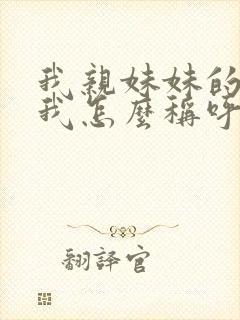 我親妹妹的
我怎麼稱呼
翻譯官